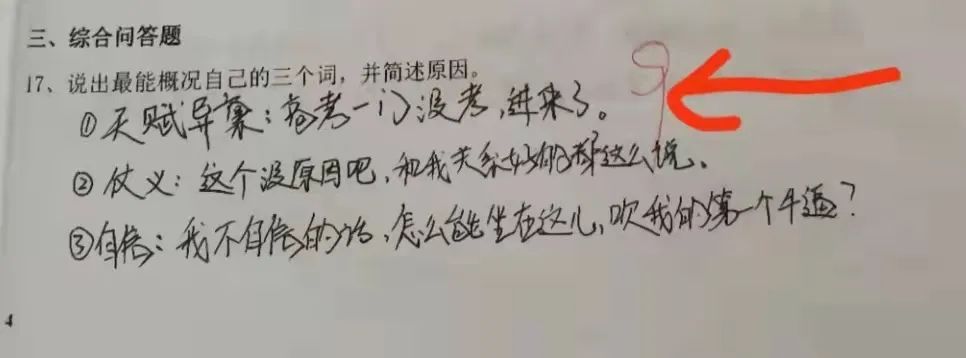 三、综合问答题
17、说出最能概况自己的三个词，并简述原因。
9
①天赋异禀：高考一门没考，进来了。
②仗义：这个没原因吧，和我关系好的都这么说。
③自信：我不自信的话，怎么能坐在这儿，吹我的第一个牛逼？
4